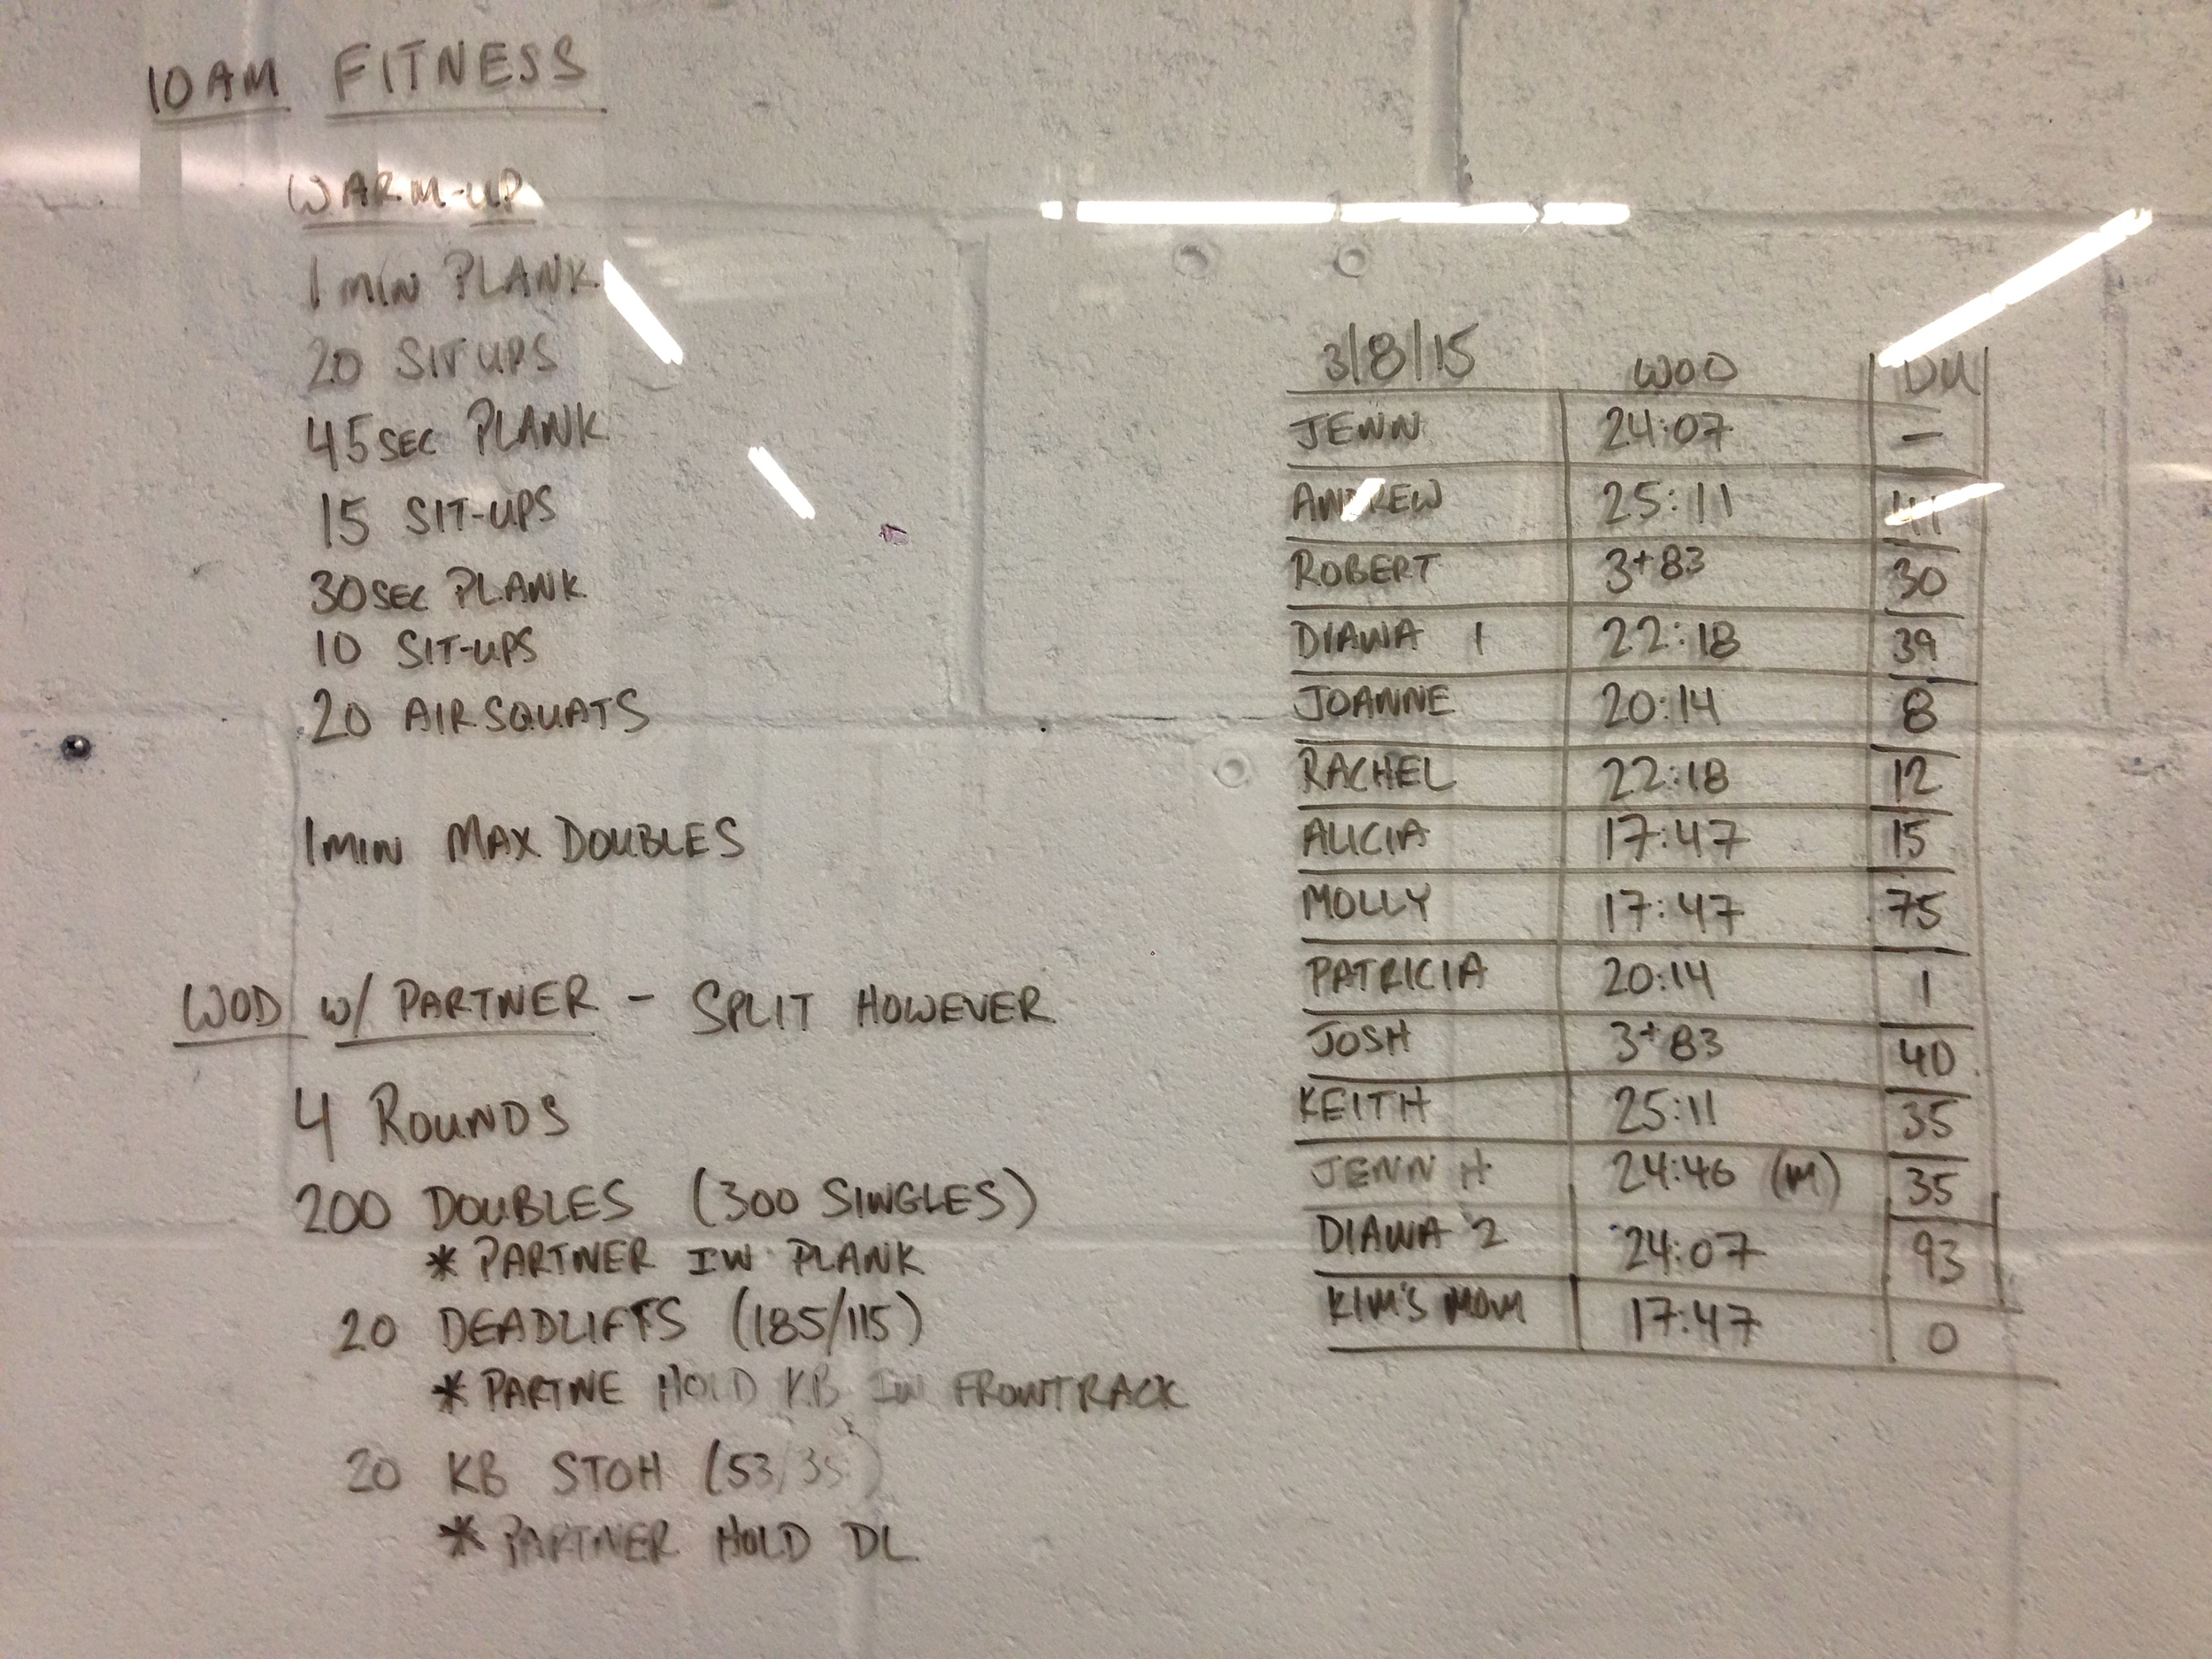 10AM FITNESS
WARM-UP
1 MIN PLANK
20 SIT UPS
45 SEC PLANK
15 SIT-UPS
30 SEC PLANK
10 SIT-UPS
20 AIR SQUATS
1 MIN MAX DOUBLES
WOD W/ PARTNER - SPLIT HOWEVER
4 ROUNDS
200 DOUBLES (300 SINGLES)
* PARTNER IN PLANK
20 DEADLIFTS (185/115)
* PARTNE HOLD KB IN FRONTRACK
20 KB STOH (53/35)
* PARTNER HOLD DL
3/8/15 WOD DU
JENN 24:07 —
ANDREW 25:11
ROBERT 3+83 30
DIANA 1 22:18 39
JOANNE 20:14 8
RACHEL 22:18 12
ALICIA 17:47 15
MOLLY 17:47 75
PATRICIA 20:14 1
JOSH 3+83 40
KEITH 25:11 35
JENN H 24:46 (M) 35
DIANA 2 24:07 93
KIM'S MOM 17:47 0